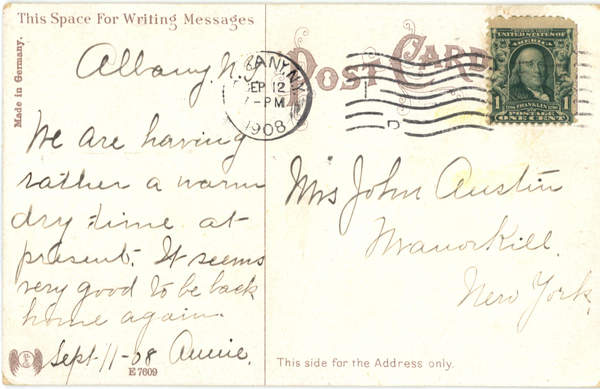 This Space For Writing Messages
Made in Germany.
Albany, N.Y.
We are having
rather a warm
dry time at
present. It seems
very good to be back
home again.
Sept-11-08 Annie.
E 7609
POST CARD
ALBANY, N.Y.
SEP 12
7-PM
1908
D
UNITED STATES OF
AMERICA
1 FRANKLIN 1
POSTAGE
ONE CENT
Mrs John Austin
Manorkill.
New York.
This side for the Address only.